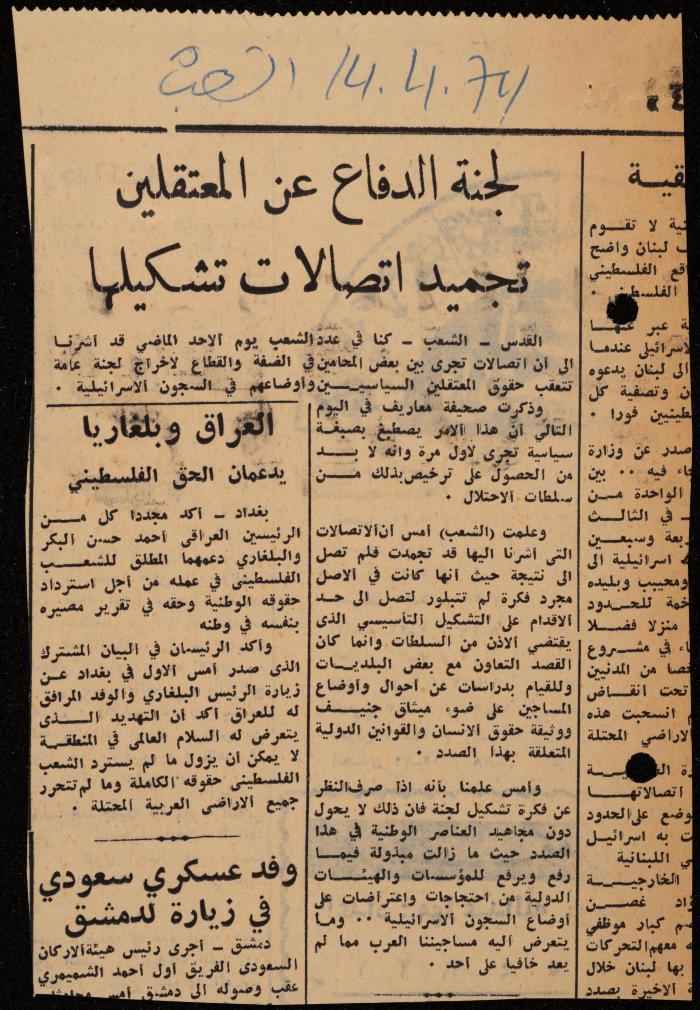 الشعب 14.4.74
لجنة الدفاع عن المعتقلين
تجميد اتصالات تشكيلها
القدس ــ الشعب ــ كنا في عدد الشعب يوم الاحد الماضي قد أشرنا
الى أن اتصالات تجرى بين بعض المحامين في الضفة والقطاع لاخراج لجنة عامة
تتعقب حقوق المعتقلين السياسيين وأوضاعهم في السجون الاسرائيلية .
وذكرت صحيفة معاريف في اليوم
التالي أن هذا الامر يصطبغ بصبغة
سياسية تجرى لاول مرة وانه لا بد
من الحصول على ترخيص بذلك من
سلطات الاحتلال .
وعلمت (الشعب) أمس أن الاتصالات
التى أشرنا اليها قد تجمدت فلم تصل
الى نتيجة حيث أنها كانت في الاصل
مجرد فكرة لم تتبلور لتصل الى حد
الاقدام على التشكيل التأسيسي الذى
يقتضي الاذن من السلطات وانما كان
القصد التعاون مع بعض البلديات
وللقيام بدراسات عن أحوال وأوضاع
المساجين على ضوء ميثاق جنيف
ووثيقة حقوق الانسان والقوانين الدولية
المتعلقة بهذا الصدد .
وأمس علمنا بأنه اذا صرف النظر
عن فكرة تشكيل لجنة فان ذلك لا يحول
دون مجاهيد العناصر الوطنية في هذا
الصدد حيث ما زالت مبذولة فيما
رفع ويرفع للمؤسسات والهيئات
الدولية من احتجاجات واعتراضات على
أوضاع السجون الاسرائيلية ٠٠ وما
يتعرض اليه مساجيننا العرب مما لم
يعد خافيا على أحد .
العراق وبلغاريا
يدعمان الحق الفلسطيني
بغداد ــ أكد مجددا كل من
الرئيسين العراقى أحمد حسن البكر
والبلغاري دعمهما المطلق للشعب
الفلسطينى في عمله من أجل استرداد
حقوقه الوطنية وحقه في تقرير مصيره
بنفسه في وطنه
وأكد الرئيسان في البيان المشترك
الذى صدر أمس الاول في بغداد عن
زيارة الرئيس البلغاري والوفد المرافق
له للعراق أكد أن التهديد الذى
يتعرض له السلام العالمى في المنطقة
لا يمكن أن يزول ما لم يسترد الشعب
الفلسطينى حقوقه الكاملة وما لم تتحرر
جميع الاراضى العربية المحتلة .
وفد عسكري سعودي
في زيارة لدمشق
دمشق ــ أجرى رئيس هيئة الاركان
السعودى الفريق أول أحمد الشميمري
عقب وصوله الى دمشق أمس
لا تقوم
لبنان واضح
الفلسطيني
الفلسطيني .
عبر عنها
عندما
الى لبنان يدعوه
وتصفية كل
فورا .
صدر عن وزارة
فيه ٠٠ بين
الواحدة من
في الثالث
وسبعين
اسرائيلية الى
ومحيبب وبليده
للحدود
منزلا فضلا
في مشروع
من المدنيين
تحت انقاض
انسحبت هذه
الاراضي المحتلة
اتصالاتها
على الحدود
به اسرائيل
اللبنانية
الخارجية
غصن
كبار موظفي
معهم التحركات
بها لبنان خلال
الاخيرة بصدد